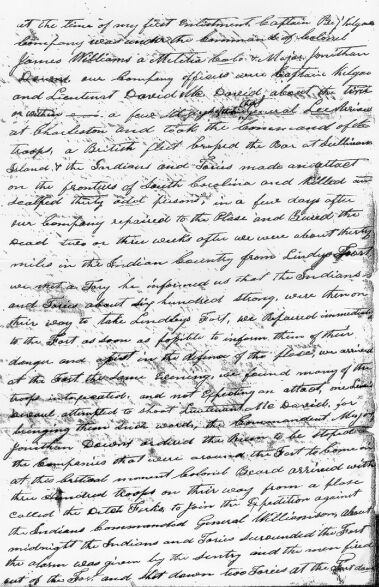 at the time of my first enlistment Captain Benj Kilgore
Company was under the Command of Colonel
James Williams a Militia Colo. & Major Jonathan
Downs our Company officers were Captain Kilgore
and Lieutenant David Mc Davids about the time
or within a few days General Lee arrived
at Charleston and took the Command of the
troops, a British fleet crossed the Bar at Sullivans
Island & the Indians and Tories made an attact
on the frontiers of South Carolina and Killed and
scalped thirty odd persons, in a few days after
our Company repaired to the Place and Buried the
Dead two or three weeks after we were about thirty
miles in the Indian Country from Lindleys Fort
we met a Tory he informed us that the Indians
and Tories about six hundred strong, were then on
their way to take Lindleys Fort, we Repaired immediately
to the Fort as soon as possible to inform them of their
danger and assist in the defence of the place, we arrived
at the Fort the same evening, we found many of the
troops intoxicated, and not expecting an attact, one
attempted to shoot Lieutenant Mc Davids, for
bringing them such words, the Commandant Major
Jonathan Downs ordered the to be stoped
the Companies that were around the Fort to Come in
at this critical moment Colonel Beard arrived with
three Hundred troops on their way from a place
called the Dutch Forks, to join the Expedition against
the Indians Commanded General Williamson, about
midnight the Indians and Tories surrounded the Fort
the alarm was given by the sentry and the men fired
out of the Fort and shot down two Tories at the